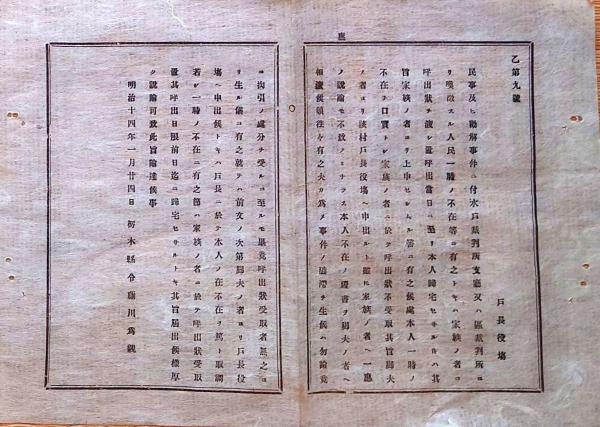 乙第九號
戸長役場
民事及ヒ勸解事件ニ付水戸裁判所支廳又ハ區裁判所ニ
リ喚徴スル人民一時ノ不在等ニ有之トキハ家族ノ者ニ
呼出狀ヲ渡シ置呼出當日ニ至リ本人歸宅セサル時ハ其
旨家族ノ者ヨリ上申セシムル筈ニ有之候處本人一時ノ
不在ヲ口實トシ家族ノ者ニ於テ呼出狀不受取其旨脚夫
ノ者ヨリ該村戸長役場ヘ申出ルト雖モ家族ノ者ヘ一應
ノ説諭モ不致ノミナラス本人不在ノ證書ヲ脚夫ノ者ヘ
相渡候傾往々有之夫カ爲メ事件ノ磕滯ヲ生候ハ勿論竟
ニ拘引ノ處分ヲ受ルニ至ルモ畢竟呼出狀受取者無之ニ
リ生ル儀ニ有之就テハ前文ノ次第脚夫ノ者ヨリ戸長役
塲ヘ申出候トキハ戸長ニ於テ本人ノ在不在ヲ篤ト取調
若シ一時ノ不在ニ有之節ハ家族ノ者ニ於テ呼出狀受取
置其呼出日限前日迄ニ歸宅セサルトキ其旨屆出候樣厚
ク說諭可致此旨諭達候事
明治十四年一月廿四日 栃木縣令藤川爲親